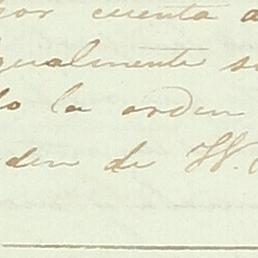 por cuenta
gualmente
la orden
den de W.